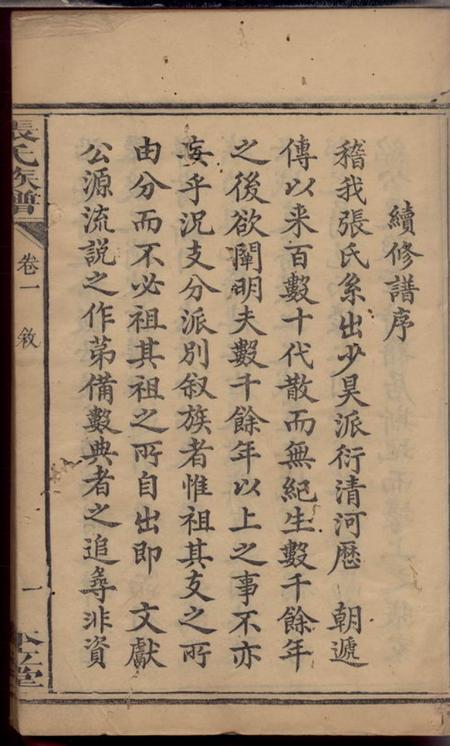 續修譜序
稽我張氏系出少昊派衍清河歷　朝遞
傳以来百數十代散而無紀生數千餘年
之後欲闡明夫數千餘年以上之事不亦
妄乎况支分派別叙族者惟祖其支之所
由分而不必祖其祖之所自出即　文獻
公源流說之作苐備數典者之追尋非資
張氏族譜
卷一
敘
一